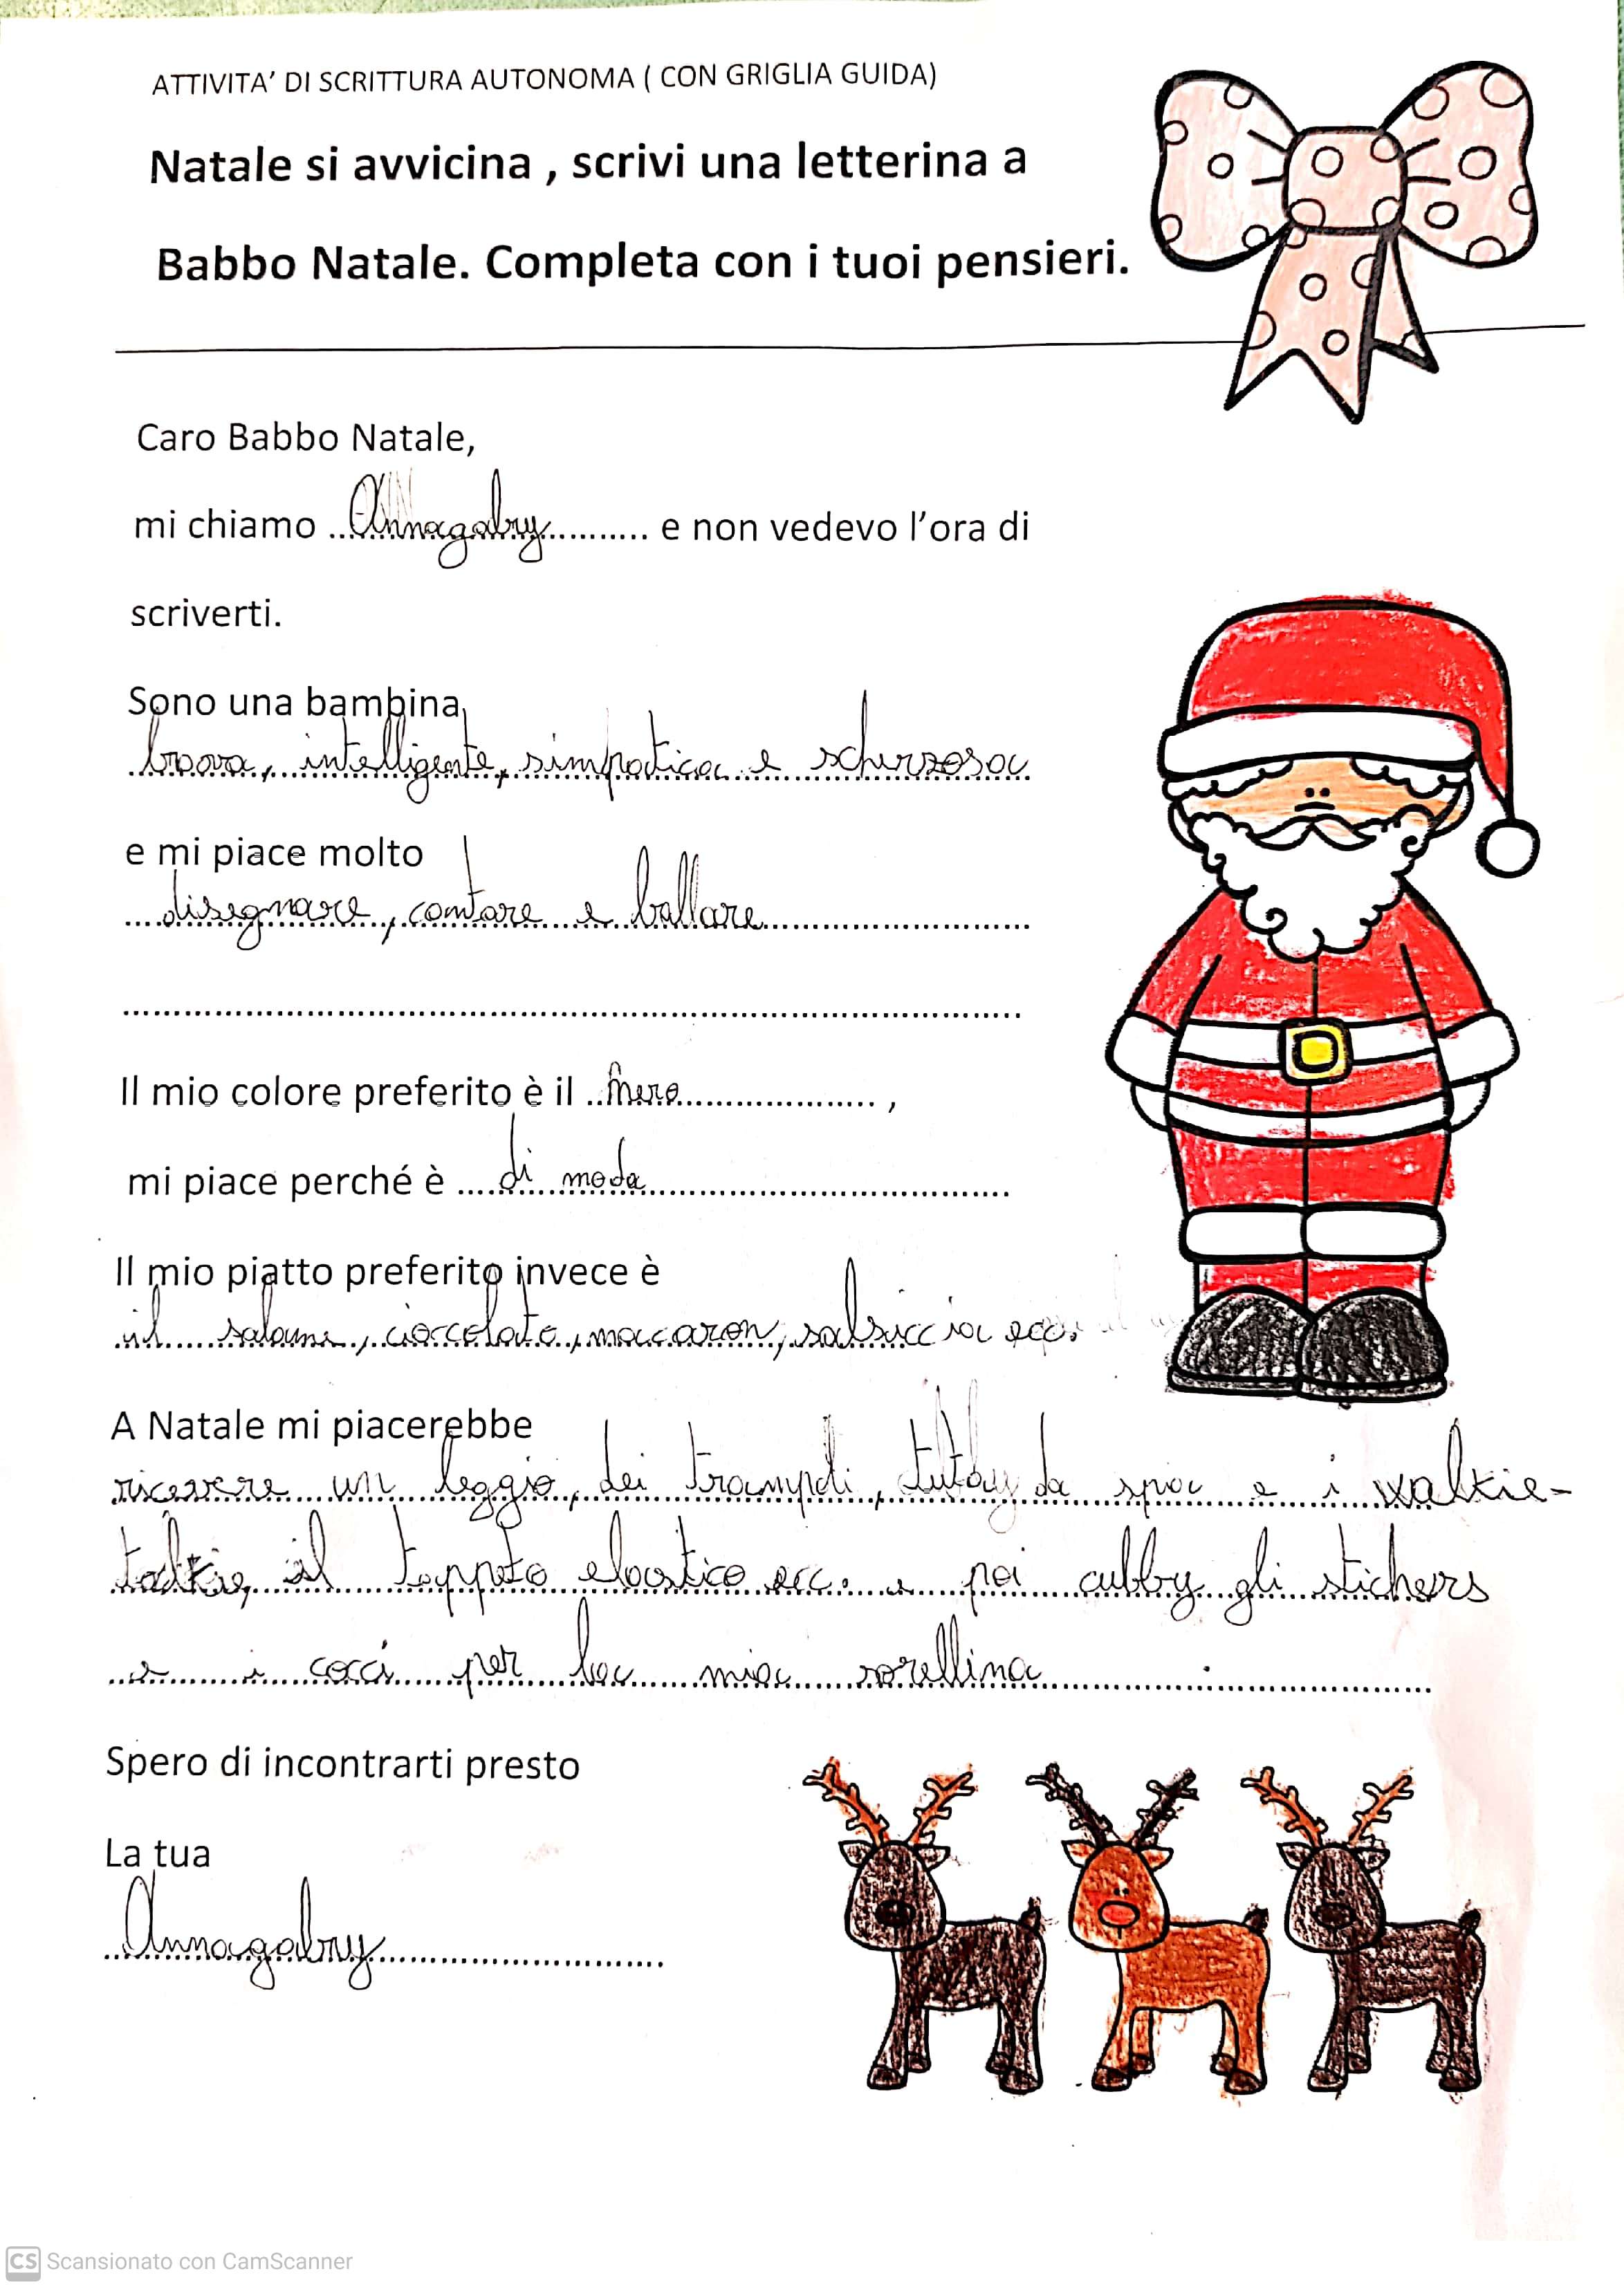 ATTIVITA' DI SCRITTURA AUTONOMA ( CON GRIGLIA GUIDA)
Natale si avvicina , scrivi una letterina a
Babbo Natale. Completa con i tuoi pensieri.
Caro Babbo Natale,
mi chiamo Annagabry e non vedevo l'ora di
scriverti.
Sono una bambina
brava, intelligente, simpatica e scherzosa
e mi piace molto
disegnare, cantare e ballare
Il mio colore preferito è il nero ,
mi piace perché è di moda
Il mio piatto preferito invece è
il salame, cioccolato, maccaron, salsiccia ecc.
A Natale mi piacerebbe
ricevere un leggio, dei trampoli, da spia e i walkie-
talkie, il tappeto elastico ecc. e poi cubby gli stichers
e i cocci per la mia sorellina .
Spero di incontrarti presto
La tua
Annagabry
CS Scansionato con CamScanner